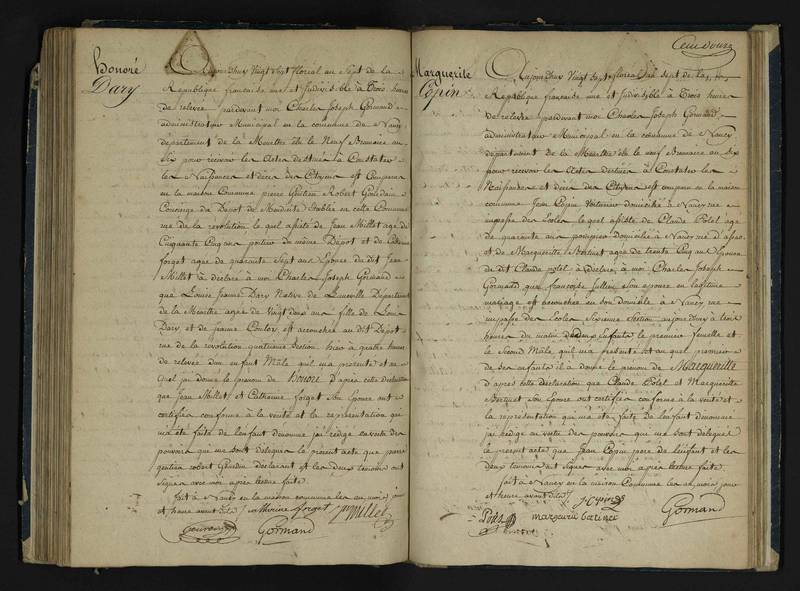 Honoré
Dary
Aujourd'huy Vingt Sept floreal an Sept de La
Republique française une et Indivisible à Trois heures
de relevée pardevant moi Charles Joseph Gormand
administrateur Municipal en la commune de Nancy
département de la Meurthe élu le Neuf Brumaire an
Six pour recevoir les Actes destinés à Constater
les Naissances et décès des Citoyens est Comparu
en la maison Commune pierre Robert
Concierge du Depot de Mendicité établie en cette Commune
rue de la revolution lequel assisté de Jean Millet agé de
Cinquante Cinq ans portier du même Dépot et de Catherine
forget agée de quarante Sept ans Epouse du dit Jean
Millet à déclaré à moi Charles Joseph Gormand
que Louise Jeanne Dary Native de Luneville Département
de la Meurthe agée de Vingt deux ans fille de
Dary et de Jeanne est accouchée au dit Depot
rue de la revolution quatrieme Section hier à quatre heures
de relevée d'un enfant Mâle qu'il m'a présenté et au
quel j'ai donné le prenom de Honoré D'après cette déclaration
que Jean Millet et Catherine forget Son Epouse ont
certifiée conforme à la verité et la représentation qui
m'a été faite de l'enfant dénommé j'ai rédigé en vertu des
pouvoirs qui me sont délégués le présent acte que pierre
robert déclarant et les deux temoins ont
Signés avec moi après lecture faite.
fait à Nancy en la maison commune les an, mois, jour
et heure avant dits
Catherine forget J Millet
Gormand
Marguerite
Copin
Aujourd'huy Vingt Sept floreal an Sept de la
Republique française une et Indivisible à Trois heures
de relevée pardevant moi Charles Joseph Gormand,
administrateur Municipal en la commune de Nancy
département de la Meurthe élu le Neuf Brumaire an Six
pour recevoir les Actes destinés à Constater les
Naissances et décès des Citoyens est comparu en la maison
commune Jean Copin Voiturier domicilié à Nancy rue
impasse des Ecoles lequel assisté de Claude Polet agé
de quarante ans domicilié à Nancy
et de Marguerite agée de trente Cinq ans Epouse
du dit Claude polet à déclaré, à moi Charles Joseph
Gormand que françoise Jullien son epouse en légitime
mariage est accouchée en son domicile à Nancy rue
impasse des Ecoles Sixieme Section aujourd'huy à
heures du matin de deux Enfants le premier femelle et
le Second Mâle, qu'il m'a présenté et au quel premier
de ses enfants il a donné le prenom de Marguerite
d'après cette déclaration que Claude Polet et Marguerite
Son Epouse ont certifiée conforme à la verité et
la représentation qui m'a été faite de l'enfant dénommé
j'ai rédigé en vertu des pouvoirs qui me sont délégués
le présent acte que Jean Copin pere de l'enfant et les
deux temoins ont signés avec moi après lecture faite.
fait à Nancy en la maison Commune les an, mois, jour
et heure avant dits
J Copin
Gormand